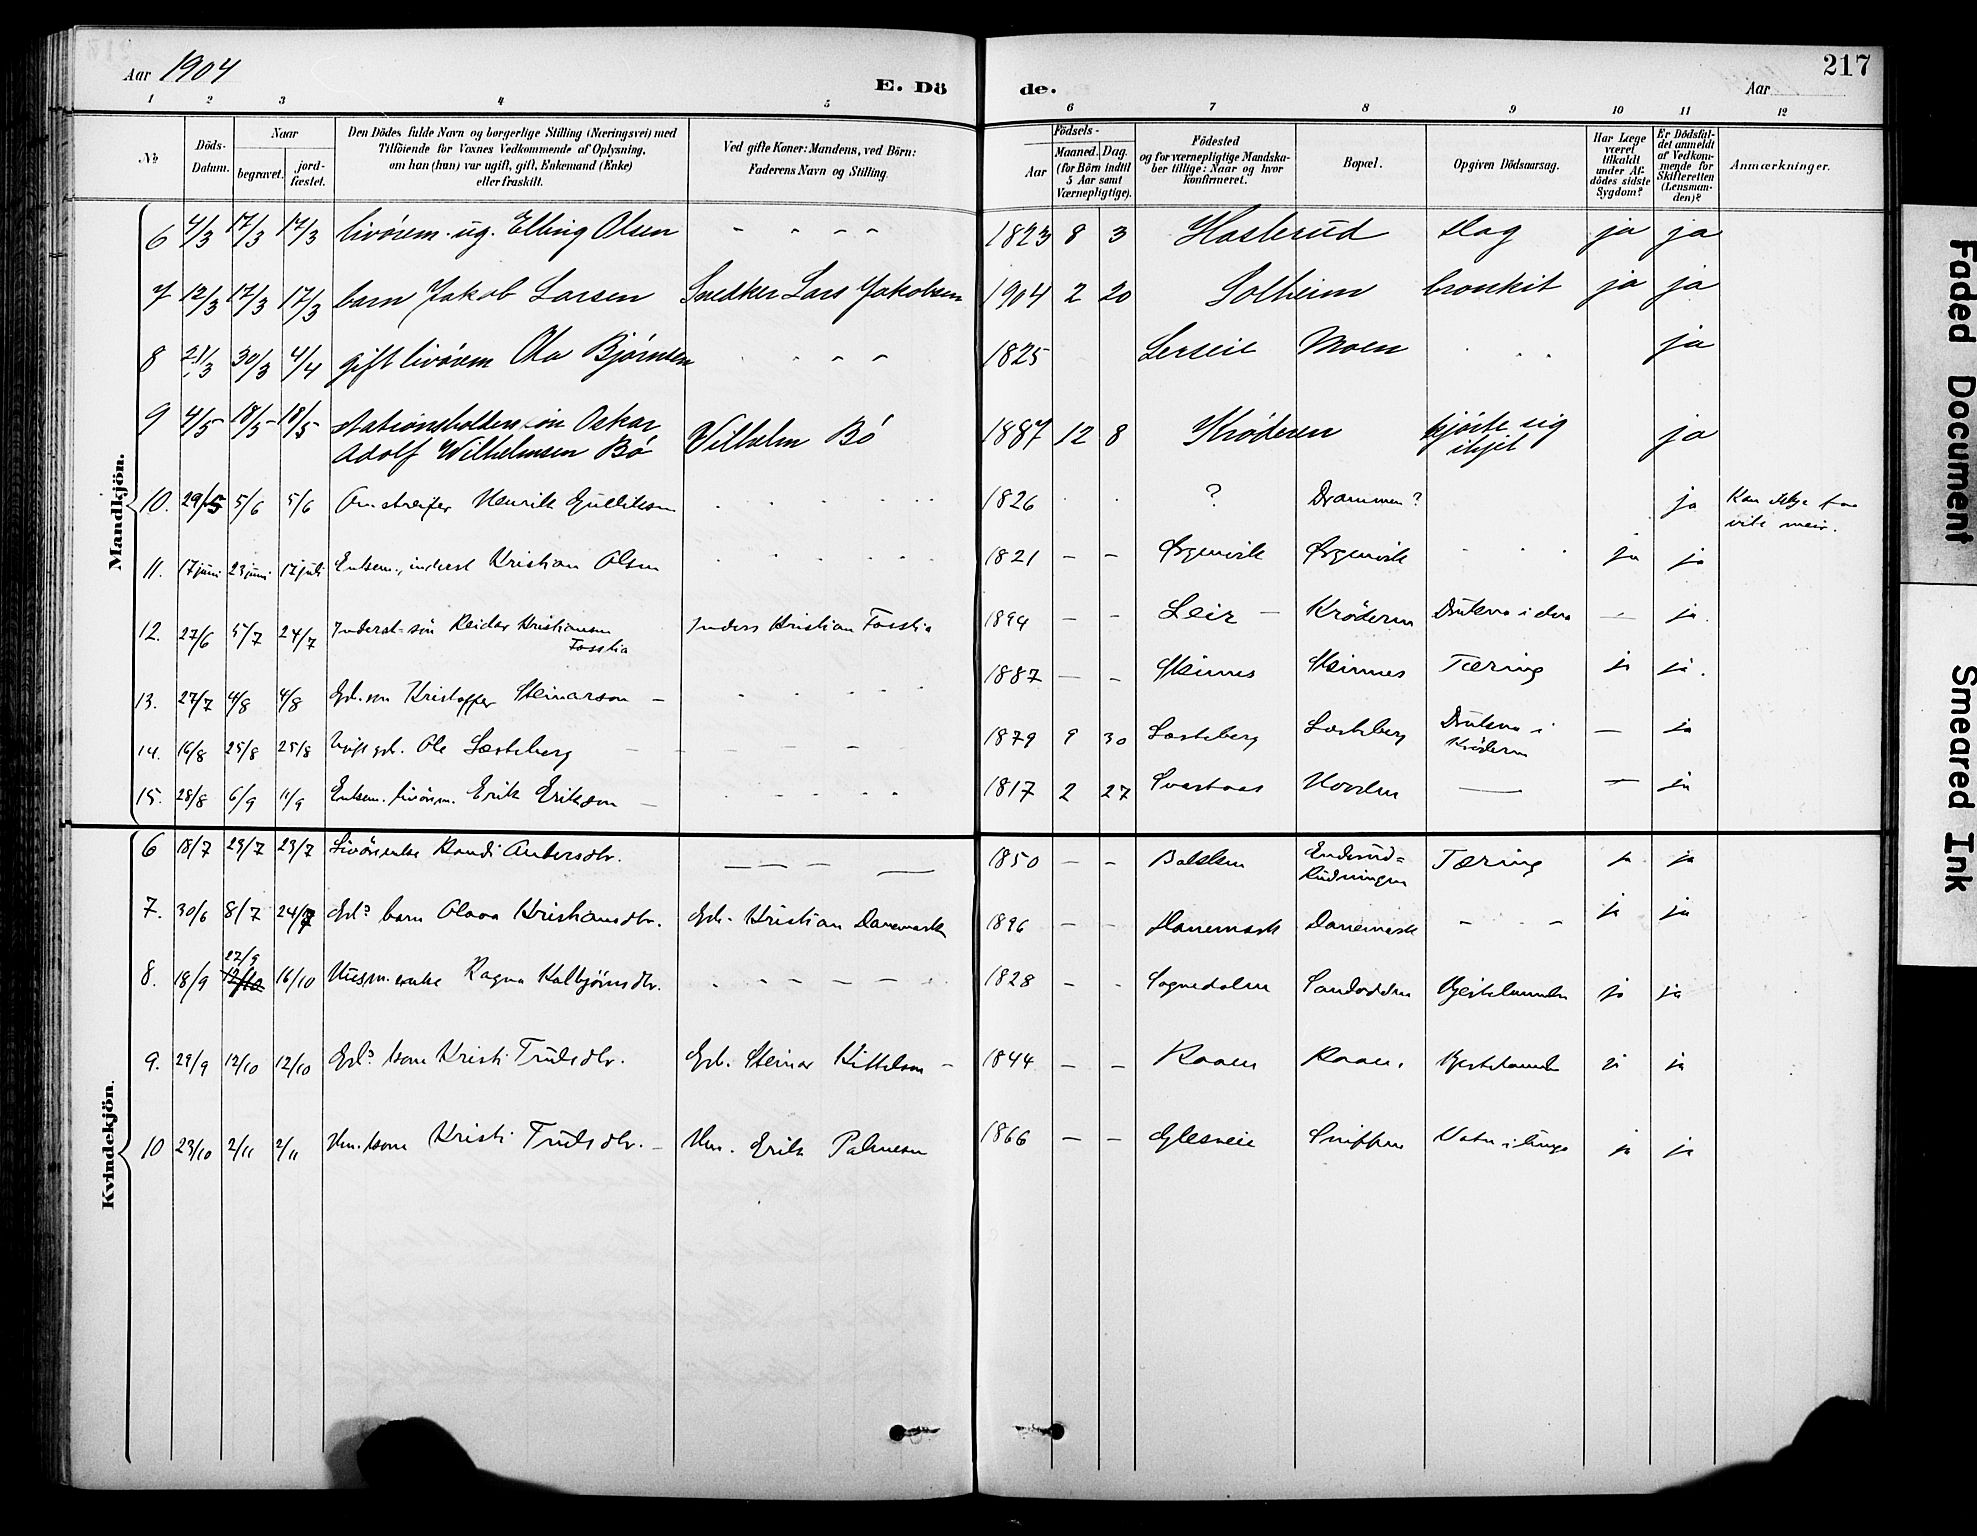 Aar 1904
E. Dö
de.
217
Aar
1 2 3 4 5 6 7 8 9 10 11 12
No
Döds-Datum.
Naar
begravet.
jord-fæstet.
Den Dödes fulde Navn og borgerlige Stilling (Næringsvei) med
Tilföiende for Voxnes Vedkommende af Oplysning,
om han (hun) var ugift, gift, Enkemand (Enke)
eller fraskilt.
Ved gifte Koner: Mandens, ved Börn:
Faderens Navn og Stilling.
Födsels-
Aar
Maaned. Dag.
(for Börn indtil
5 Aar samt
Værnepligtige).
Födested
og for værnepligtige Mandska-
ber tillige: Naar og hvor
konfirmeret.
Bopæl.
Opgiven Dödsaarsag.
Har Læge
været
tilkaldt
under Af-
dödes sidste
Sygdom?
Er Dödsfal-
det anmeldt
af Vedkom-
mende for
Skifteretten
(Lensman-
den)?
Anmærkninger.
Mandkjön.
6 4/3 17/3 17/3 livörem. ug. Elling Olsen - - - - 1823 8 3 Hasterud slag ja ja
7 12/3 17/3 17/3 barn Jakob Larsen Snedker Lars Jakobsen 1904 2 20 Solheim bronkit ja ja
8 21/3 30/3 4/4 gift livörem Ola Björnsen 1825 Lerseie Moen ja
9 4/5 18/5 18/5 stationsholdersön Oskar
Adolf Wilhelmsen Bö Vilhelm Bö 1887 12 8 Kröderen kjörte sig
ihjel ja
10. 29/5 5/6 5/6 Omstreifer Henrik Gulliksen 1826 ? Drammen? ja Kan ikkje faa
vite meir.
11. 17 juni 23 juni 17 juli Enkem., inderst Kristian Olsen 1821 - - Ørgenvik Ørgenvik ja ja
12. 27/6 5/7 24/7 Inderst-sön Reidar Kristiansen
Fosslia Inders Kristian Fosslia 1894 - - Leir Kröderen Drukna i elva - ja.
13. 27/7 4/8 4/8 Gdr. son Kristoffer Steinarson - 1887 - - Steinnes Steinnes Tæring ja ja.
14. 16/8 25/8 25/8 Ugift gdr. Ole Lesteberg 1879 9 30 Lesteberg Lesteberg Drukna i
Kröderen - ja
15. 28/8 6/9 11/9 Enkem. livörem. Erik Erikson - 1817 2 27 Svartaas - ja
Kvindekjön.
6 18/7 29/7 29/7 Livörenke Randi Andersdtr. 1850 - - Enderud-
Rudningen Tæring ja ja
7. 30/6 8/7 24/7 Gdr. barn Olava Kristiansdtr. Gdr. Kristian Danemark 1896 - - Danemark Danemark - - ja ja
8. 18/9 27/9 12/10 16/10 Husm. enke Ragna Kolbjörnsdtr. 1828 - - Sognedalen Sandodden ja ja
9. 29/9 12/10 12/10 Gdr. kone Kristi Trulsdtr. Gdr. Steinar Kittelson - 1844 - - Raaen Raaen ja ja
10 23/10 2/11 2/11 Hm. kone Kristi Trulsdtr. - Hm. Erik Palmesen 1866 - - Glesneie ja ja
Faded Document
Smeared Ink